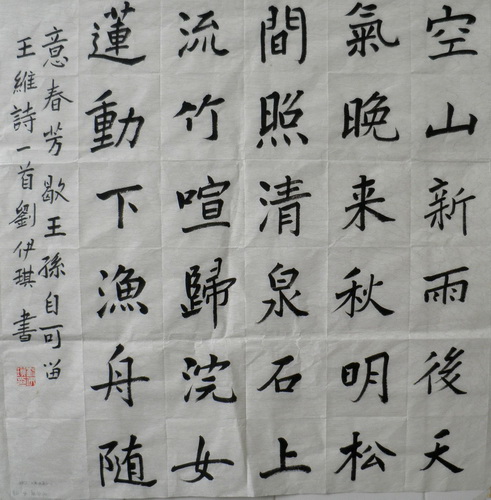 空山新雨後天
氣晚来秋明松
間照清泉石上
流竹喧歸浣女
蓮動下漁舟随
意春芳歇王孫自可留
王維詩一首劉伊琪書